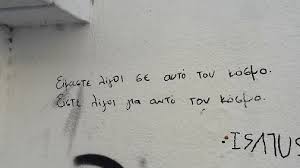 Είμαστε λίγοι σε αυτό τον κόσμο.
Είστε λίγοι για αυτό τον κόσμο.
ISATUS